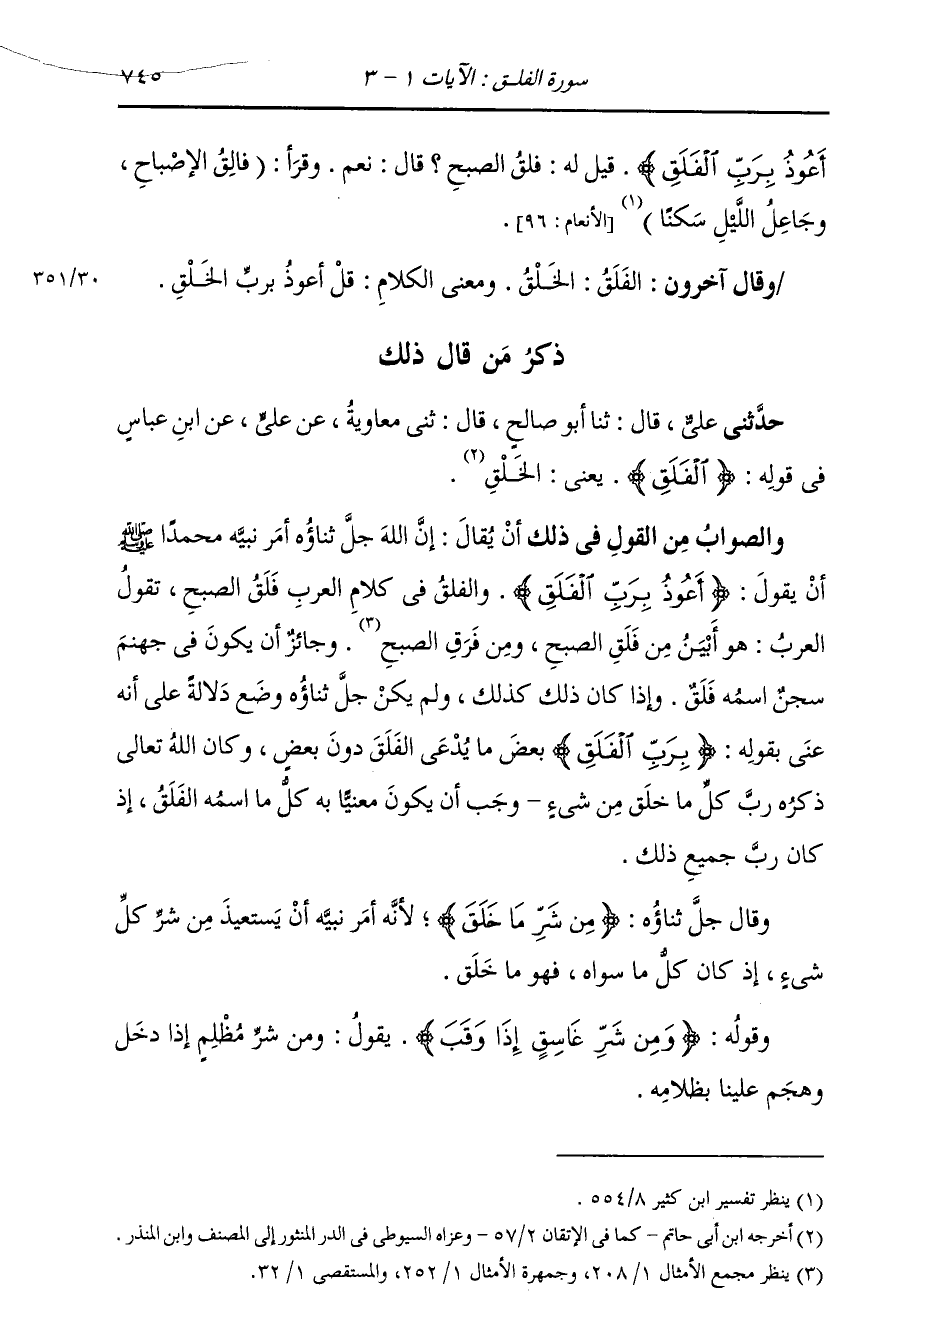 سورة الفلـق : الآيات ١ - ٣ ٧٤٥
أَعُوذُ بِرَبِّ ٱلْفَلَقِ﴾ . قيل له : فلقُ الصبحِ ؟ قال : نعم . وقرَأ : ( فالِقُ الإِصْباحِ ،
وجَاعِلُ اللَّيْلِ سَكنًا )(١) [الأنعام : ٩٦] .
/وقال آخرون : الفَلَقُ : الخَـلْقُ . ومعنى الكلامِ : قلْ أعوذُ بربِّ الخَـلْقِ . ٣٥١/٣٠
ذكرُ مَن قال ذلك
حدَّثنى علىٌّ ، قال : ثنا أبو صالحٍ ، قال : ثنى معاويةُ ، عن علىٍّ ، عن ابنِ عباسٍ
فى قولِه : ﴿ ٱلْفَلَقِ ﴾ . يعنى : الخَـلْقِ(٢) .
والصوابُ مِن القولِ فى ذلك أنْ يُقالَ : إنَّ اللهَ جلَّ ثناؤُه أمَر نبيَّه محمدًا ﷺ
أنْ يقولَ : ﴿ أَعُوذُ بِرَبِّ ٱلْفَلَقِ ﴾ . والفلقُ فى كلامِ العربِ فَلَقُ الصبحِ ، تقولُ
العربُ : هو أَبْيَنُ مِن فَلَقِ الصبحِ ، ومِن فَرَقِ الصبحِ(٣) . وجائزٌ أن يكونَ فى جهنمَ
سجنٌ اسمُه فَلَقٌ . وإذا كان ذلك كذلك ، ولم يكنْ جلَّ ثناؤُه وضَع دَلالةً على أنه
عنَى بقولِه : ﴿ بِرَبِّ ٱلْفَلَقِ ﴾ بعضَ ما يُدْعَى الفَلَقَ دونَ بعضٍ ، وكان اللهُ تعالى
ذكرُه ربَّ كلِّ ما خلَق مِن شىءٍ - وجَب أن يكونَ معنيًّا به كلُّ ما اسمُه الفَلَقُ ، إذ
كان ربَّ جميعِ ذلك .
وقال جلَّ ثناؤُه : ﴿ مِن شَرِّ مَا خَلَقَ ﴾ ؛ لأنَّه أمَر نبيَّه أنْ يَستعيذَ مِن شرِّ كلِّ
شىءٍ ، إذ كان كلُّ ما سواه ، فهو ما خَلَق .
وقولُه : ﴿ وَمِن شَرِّ غَاسِقٍ إِذَا وَقَبَ﴾ . يقولُ : ومن شرِّ مُظْلِمٍ إذا دخَل
وهجَم علينا بظلامِه .
(١) ينظر تفسير ابن كثير ٥٥٤/٨ .
(٢) أخرجه ابن أبى حاتم - كما فى الإتقان ٥٧/٢ - وعزاه السيوطى فى الدر المنثور إلى المصنف وابن المنذر .
(٣) ينظر مجمع الأمثال ١/ ٢٠٨، وجمهرة الأمثال ١/ ٢٥٢، والمستقصى ١/ ٣٢.